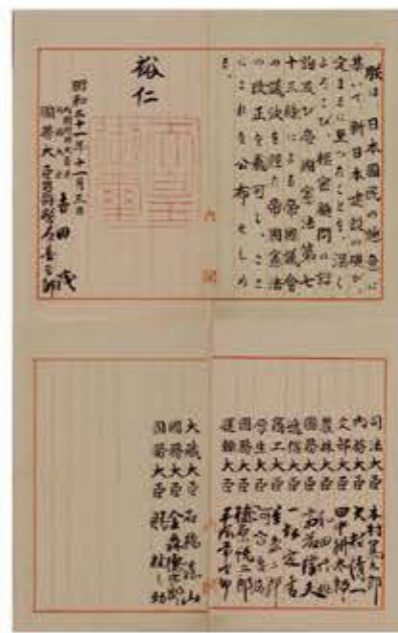 朕は、日本國民の總意に
基いて、新日本建設の礎が、
定まるに至つたことを、深く
よろこび、樞密顧問の諮
詢及び帝國憲法第七
十三條による帝國議會
の議決を經た帝國憲法
の改正を裁可し、ここ
にこれを公布せしめ
る。
裕仁
昭和二十一年十一月三日
内閣總理大臣兼
外務大臣 吉田茂
國務大臣 男爵 幣原喜重郎
内閣
司法大臣 木村篤太郎
内務大臣 大村清一
文部大臣 田中耕太郎
農林大臣 和田博雄
國務大臣 斎藤隆夫
遞信大臣 一松定吉
商工大臣 星島二郎
厚生大臣 河合良成
國務大臣 植原悦二郎
運輸大臣 平塚常次郎
大藏大臣 石橋湛山
國務大臣 金森徳次郎
國務大臣 膳桂之助